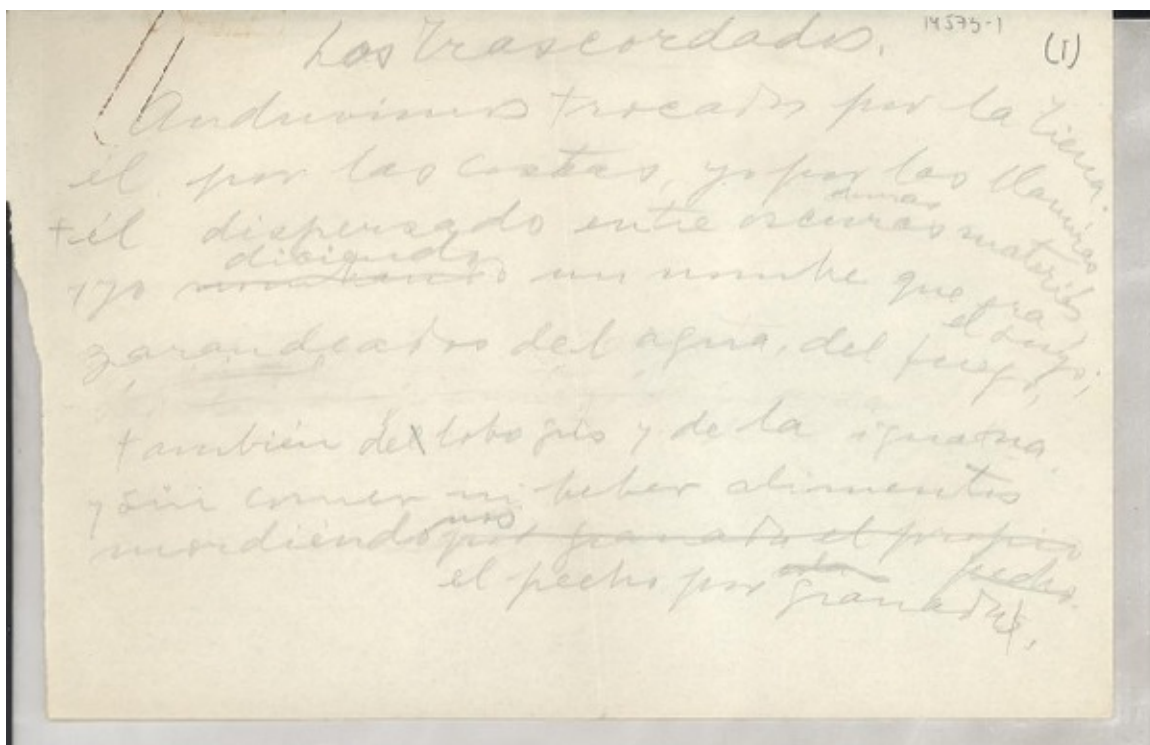 14575-1
(1)
Los trascordados.
Anduvimos trocados por la tierra.
él por las costas, yo por las llanuras
duras
+ él dispersado entre oscuras materias
diciendo
y yo un nombre que era
el suyo;
zarandeados del agua, del fuego,
también del lobo gris y de la iguana
y sin comer ni beber alimentos
nos
mordiendo por granada el propio
pecho.
el pecho por granada.